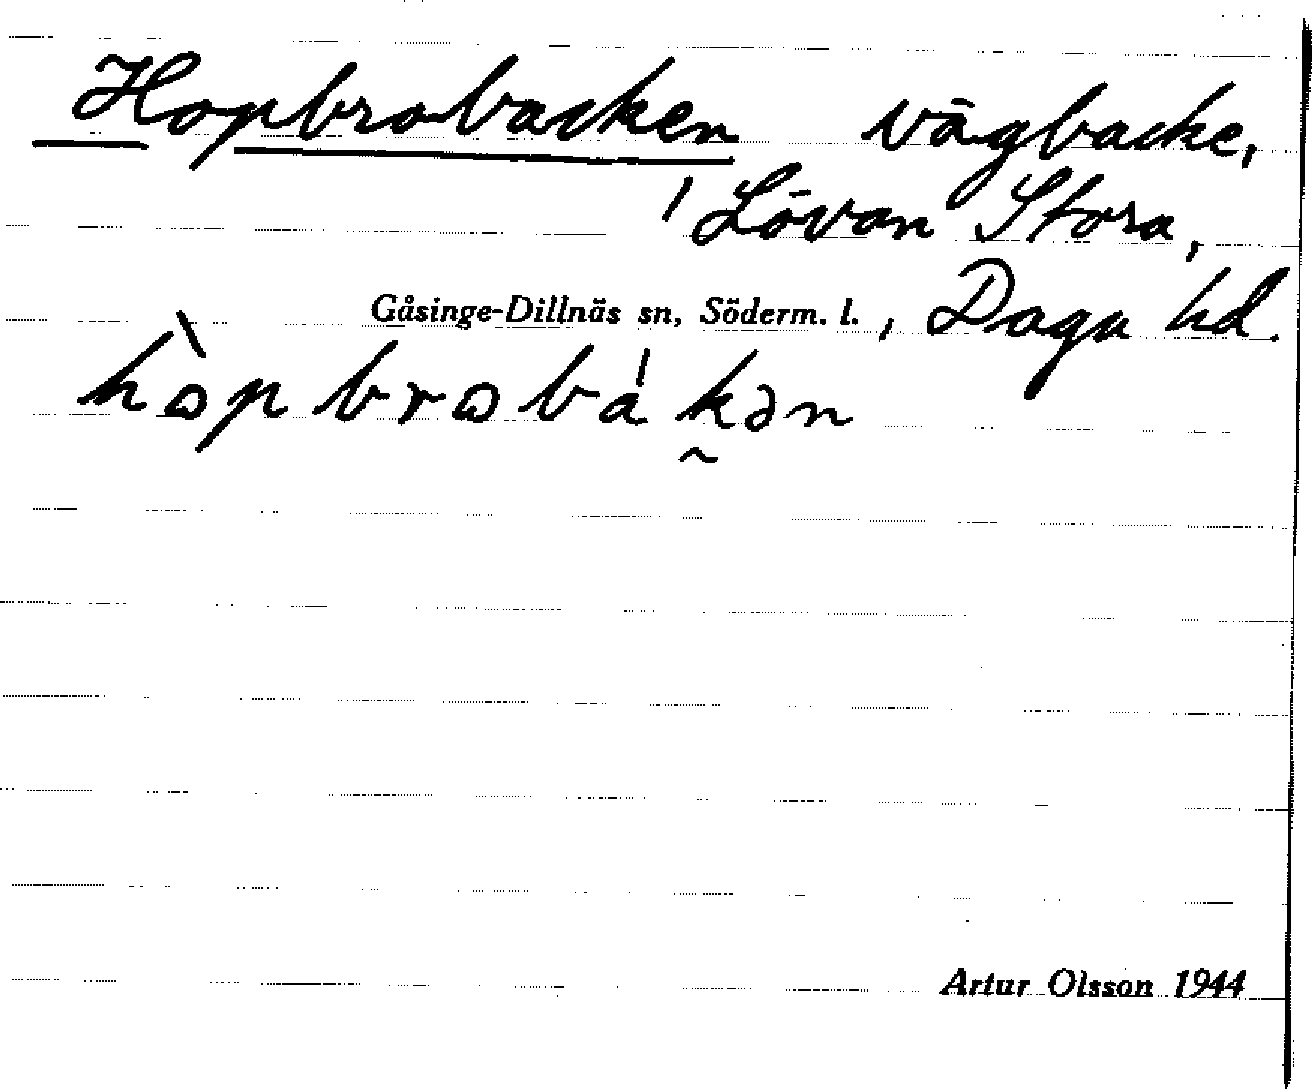 Hopbrobacken vägbacke,
Lövan Stora,
Gåsinge-Dillnäs sn, Söderm. l., Daga hd.
Artur Olsson 1944